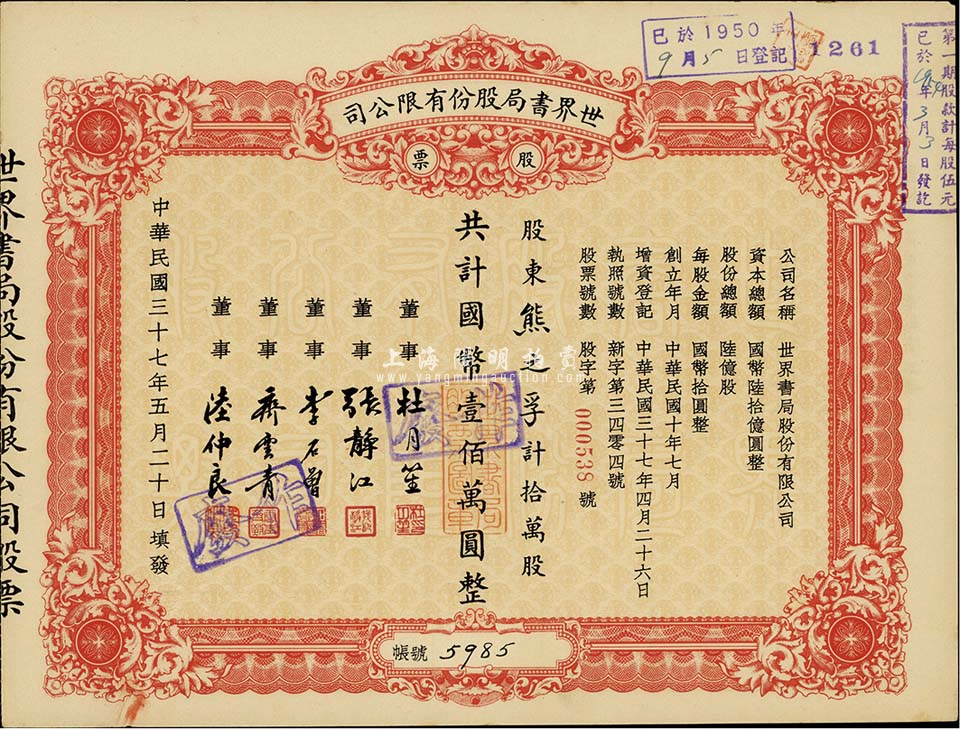 已於1950年
9月5日登記
1261
第一期股款計每股伍元
已於 年3月3日發訖
世界書局股份有限公司
股票
公司名稱 世界書局股份有限公司
資本總額 國幣陸拾億圓整
股份總額 陸億股
每股金額 國幣拾圓整
創立年月 中華民國十年七月
增資登記 中華民國三十七年四月二十六日
執照號數 新字第三四零四號
股票號數 股字第 000538 號
股東熊芝孚計拾萬股
共計國幣壹佰萬圓整
董事 杜月笙
董事 張靜江
董事 李石曾
董事 齊雲青
董事 陸仲良
作廢
作廢
中華民國三十七年五月二十日填發
帳號 5985
世界書局股份有限公司股票
上海陽明拍賣
www.yangmingauction.com